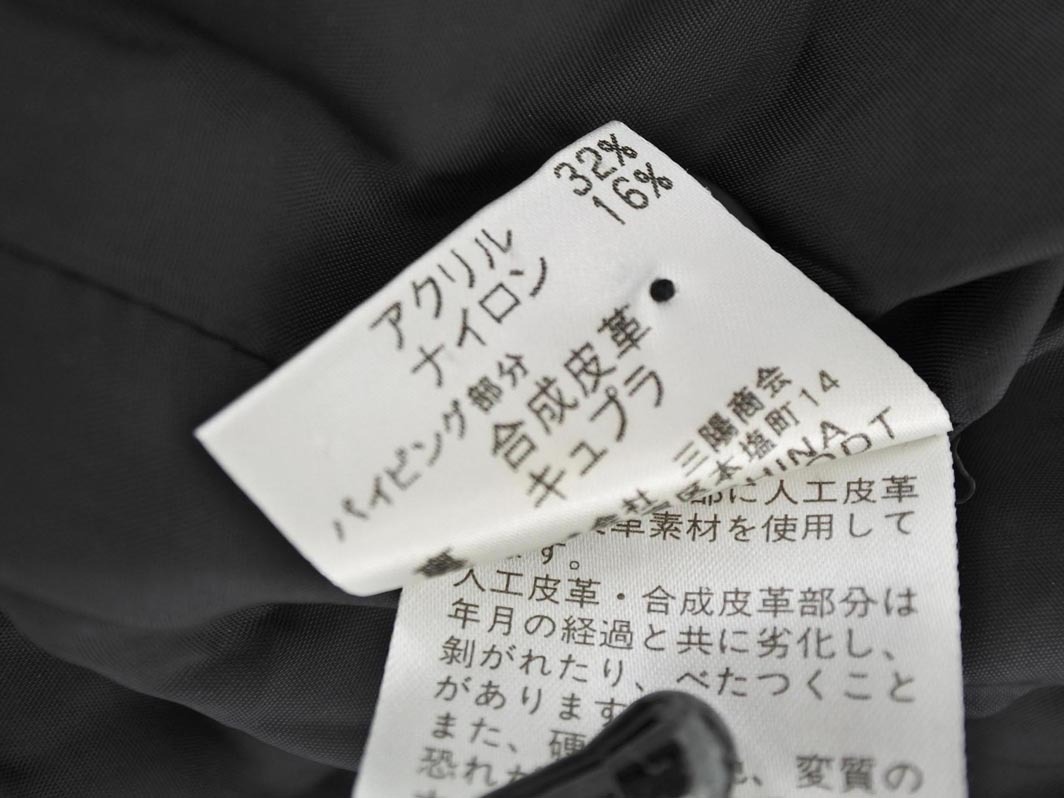 アクリル 32%
ナイロン 16%
パイピング部分
合成皮革
キュプラ
三陽商会
本塩町14
部に人工皮革
革素材を使用して
す。
人工皮革・合成皮革部分は
年月の経過と共に劣化し、
剝がれたり、べたつくこと
があります
また、硬
恐れが
、変質の